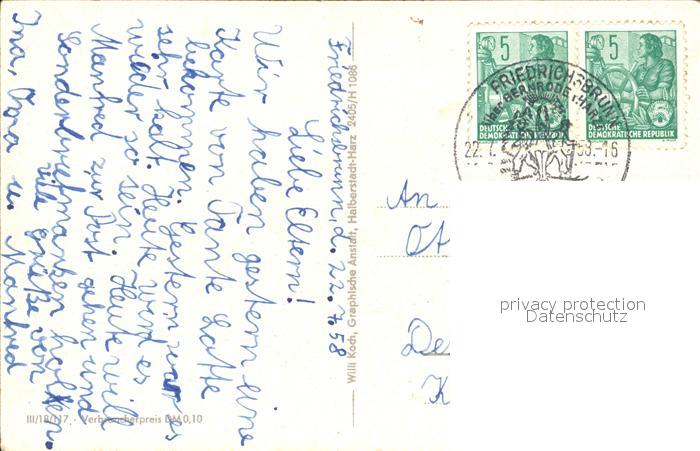 Friedrichsbrunn, d. 22.7.58
Liebe Eltern!
Wir haben gestern eine
Karte von Tante Lotte
bekommen. Gestern war es
sehr kalt. Heute wird es
wieder so sein. Heute will
Manfred zur Post gehen und
Sonderbriefmarken holen.
Viele Grüße von
Ina, Dora u. Manfred
III/18/117 · Verbraucherpreis DM 0,10
Willi Koch, Graphische Anstalt, Halberstadt-Harz 2405/H 1086
5
DEUTSCHE
DEMOKRATISCHE REPUBLIK
5
DEUTSCHE
DEMOKRATISCHE REPUBLIK
FRIEDRICHSBRUNN
22.7.
58.-16
An
Ot
De
K
privacy protection
Datenschutz